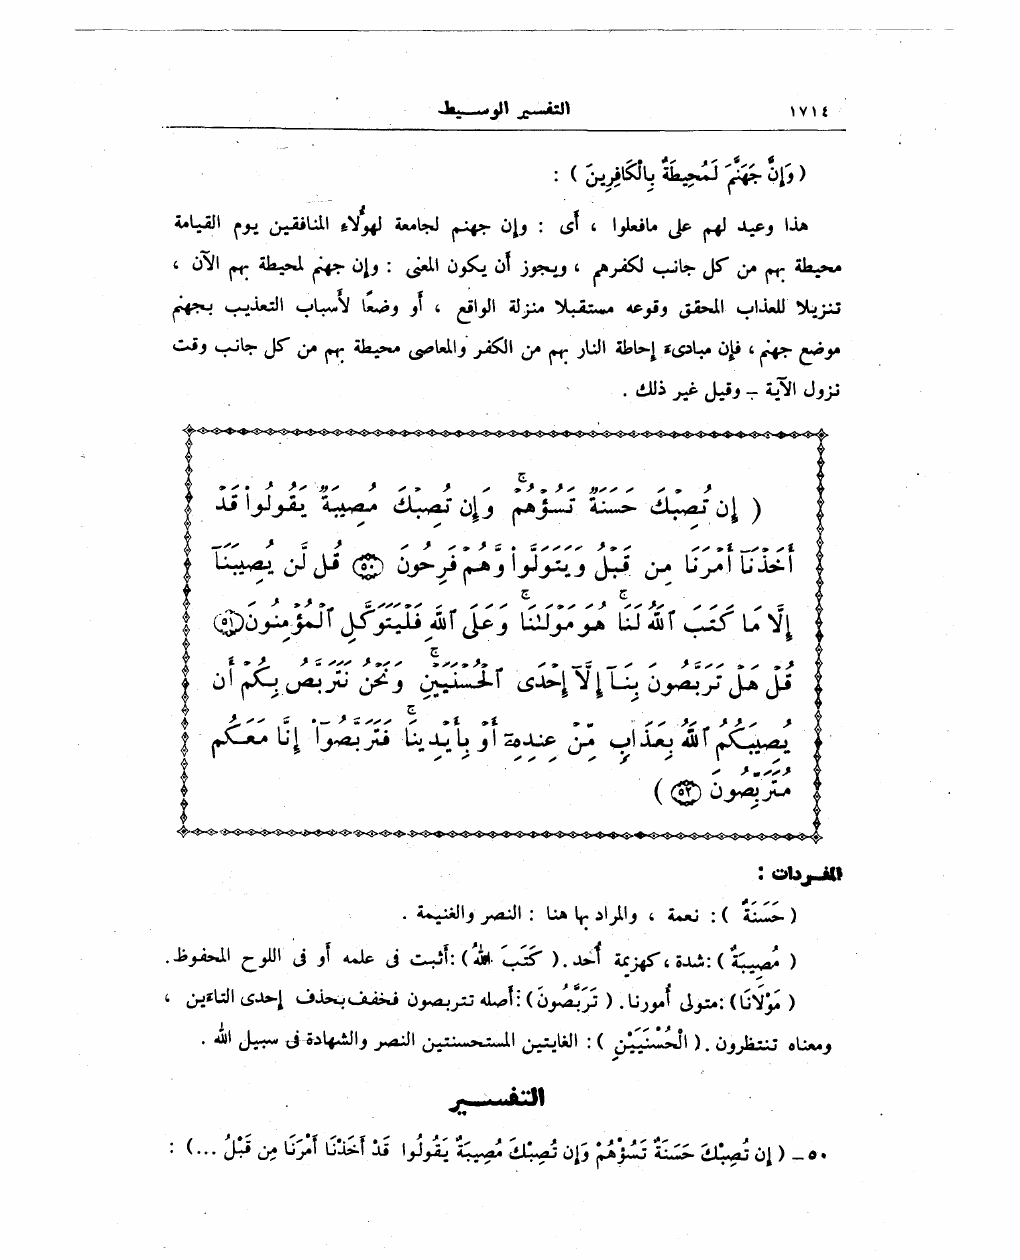 ١٧١٤
التفسير الوسيط
( وَإِنَّ جَهَنَّمَ لَمُحِيطَةٌ بِالْكَافِرِينَ ) :
هذا وعيد لهم على مافعلوا ، أى : وإن جهنم لجامعة لهؤلاء المنافقين يوم القيامة
محيطة بهم من كل جانب لكفرهم ، ويجوز أن يكون المعنى : وإن جهنم لمحيطة بهم الآن ،
تنزيلا للعذاب المحقق وقوعه مستقبلا منزلة الواقع ، أو وضعًا لأسباب التعذيب بجهنم
موضع جهنم ، فإن مبادىء إحاطة النار بهم من الكفر والمعاصى محيطة بهم من كل جانب وقت
نزول الآية – وقيل غير ذلك .
( إِن تُصِبْكَ حَسَنَةٌ تَسُؤْهُمْ ۖ وَإِن تُصِبْكَ مُصِيبَةٌ يَقُولُوا۟ قَدْ
أَخَذْنَآ أَمْرَنَا مِن قَبْلُ وَيَتَوَلَّوا۟ وَّهُمْ فَرِحُونَ ۝٥٠ قُل لَّن يُصِيبَنَآ
إِلَّا مَا كَتَبَ ٱللَّهُ لَنَا هُوَ مَوْلَىٰنَا ۚ وَعَلَى ٱللَّهِ فَلْيَتَوَكَّلِ ٱلْمُؤْمِنُونَ ۝٥١
قُلْ هَلْ تَرَبَّصُونَ بِنَآ إِلَّآ إِحْدَى ٱلْحُسْنَيَيْنِ ۖ وَنَحْنُ نَتَرَبَّصُ بِكُمْ أَن
يُصِيبَكُمُ ٱللَّهُ بِعَذَابٍ مِّنْ عِندِهِۦٓ أَوْ بِأَيْدِينَا ۖ فَتَرَبَّصُوٓا۟ إِنَّا مَعَكُم
مُّتَرَبِّصُونَ ۝٥٢ )
المفـردات :
( حَسَنَةٌ ) : نعمة ، والمراد بها هنا : النصر والغنيمة .
( مُصِيبَةٌ ) : شدة ، كهزيمة أُحد . ( كَتَبَ اللهُ ) : أثبت فى علمه أو فى اللوح المحفوظ .
( مَوْلَانَا ) : متولى أُمورنا . ( تَرَبَّصُونَ ) : أصله تتربصون فخفف بحذف إحدى التاءين ،
ومعناه تنتظرون . ( الْحُسْنَيَيْنِ ) : الغايتين المستحسنتين النصر والشهادة فى سبيل الله .
التفســـير
٥٠ – ( إِن تُصِبْكَ حَسَنَةٌ تَسُؤْهُمْ وَإِن تُصِبْكَ مُصِيبَةٌ يَقُولُوا قَدْ أَخَذْنَا أَمْرَنَا مِن قَبْلُ ... ) :